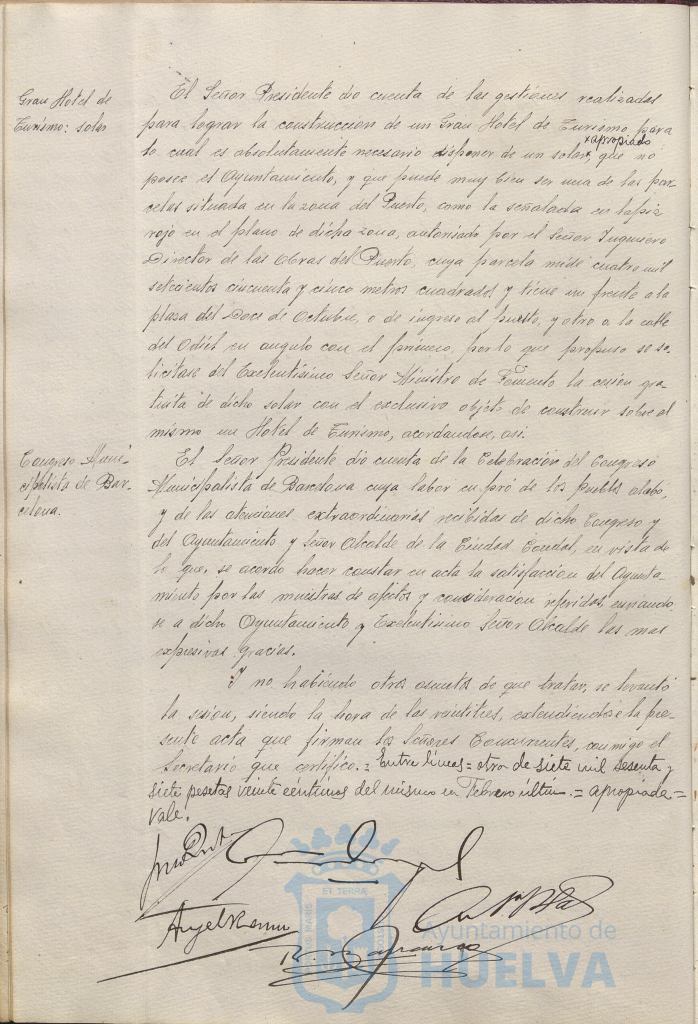 Gran Hotel de
Turismo: solar
El Señor Presidente dio cuenta de las gestiones realizadas
para lograr la construccion de un Gran Hotel de Turismo para
×apropiado
lo cual es absolutamente necesario disponer de un solar× que no
posee el Ayuntamiento, y que puede muy bien ser una de las par-
celas situada en la zona del Puerto, como la señalada en lapiz
rojo en el plano de dicha zona, autorizado por el Señor Ingeniero
Director de las Obras del Puerto, cuya parcela mide cuatro mil
setecientos cincuenta y cinco metros cuadrados y tiene un frente a la
plaza del Doce de Octubre, o de ingreso al puerto, y otro a la calle
del Odiel en angulo con el primero, por lo que propuso se so-
licitase del Excelentisimo Señor Ministro de Fomento la cesion gra-
tuita de dicho solar con el exclusivo objeto de construir sobre el
mismo un Hotel de Turismo, acordandose, asi.
Congreso Muni-
cipalista de Bar-
celona.
El Señor Presidente dio cuenta de la Celebración del Congreso
Municipalista de Barcelona cuya labor en pró de los pueblos alabó,
y de las atenciones extraordinarias recibidas de dicho Congreso y
del Ayuntamiento y Señor Alcalde de la Ciudad Condal, en vista de
lo que, se acordo hacer constar en acta la satisfaccion del Ayunta-
miento por las muestras de afectos y consideracion referidas, enviando-
se a dicho Ayuntamiento y Exelentisimo Señor Alcalde las mas
expresivas gracias.
Y no habiendo otros asuntos de que tratar, se levantó
la sesion, siendo la hora de las veintitres, extendiendose la pre-
sente acta que firman los Señores Concurrentes, conmigo el
Secretario que certifico.= Entre lineas = otro de siete mil sesenta y
siete pesetas veinte céntimos del mismo en Febrero últim. = apropiado =
Vale.
Angel
ET TERRÆ
Ayuntamiento de
HUELVA